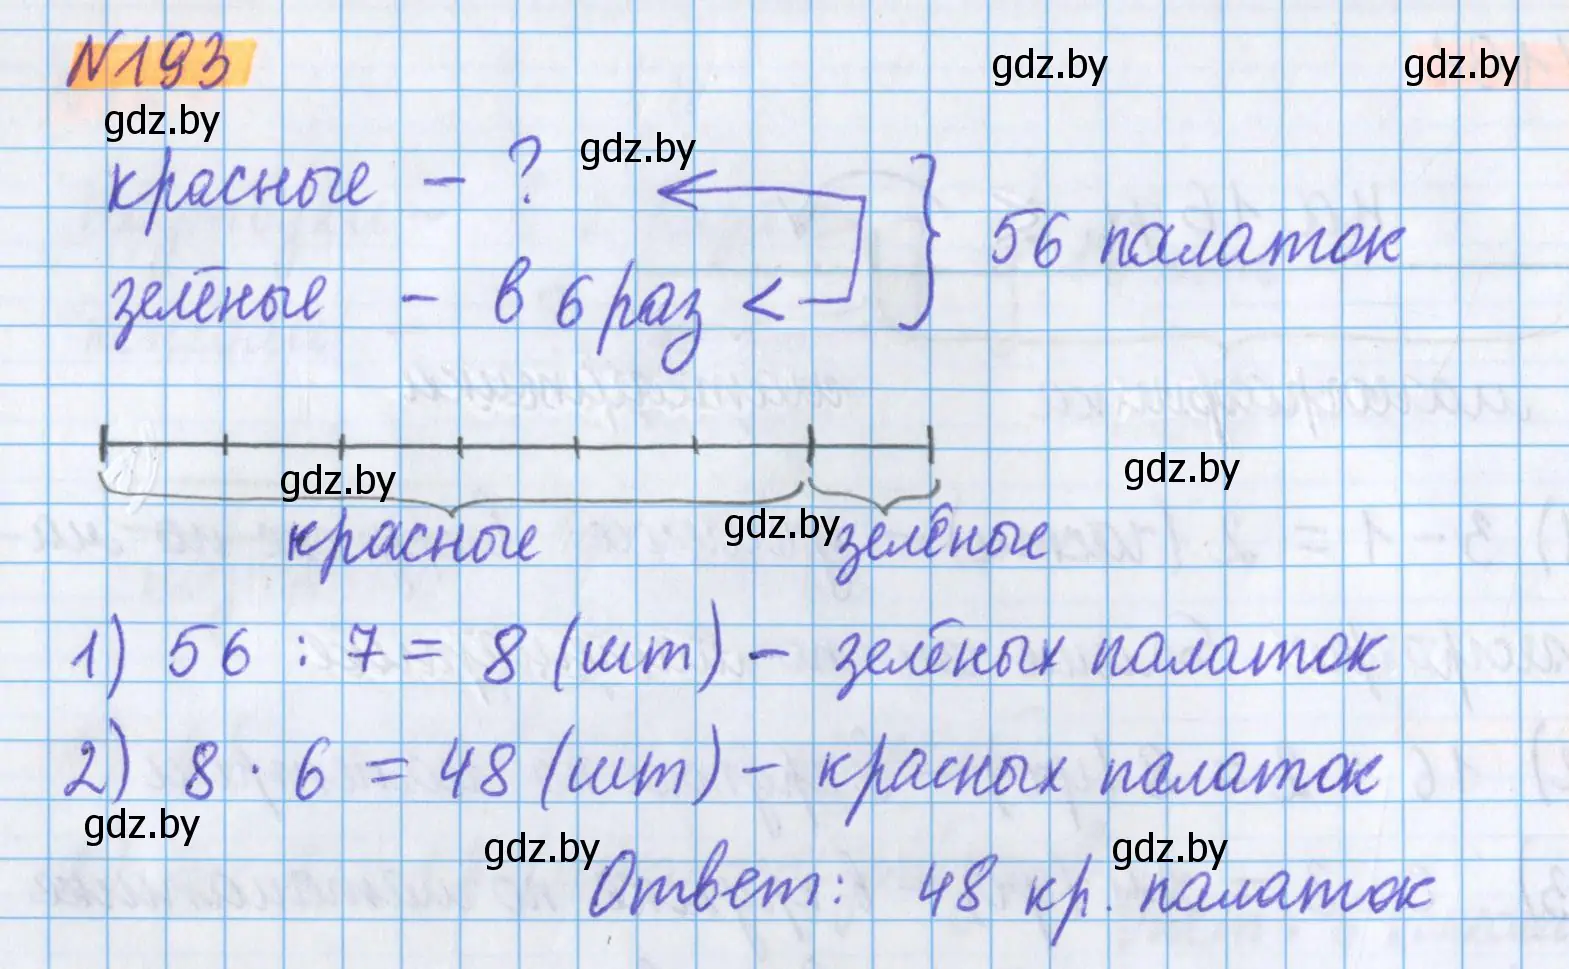 N193
gdz.by gdz.by
gdz.by
gdz.by
красные - ?
56 палаток
зелёные - в 6 раз <
gdz.by gdz.by
gdz.by
красные зелёные
1) 56 : 7 = 8 (шт) - зелёных палаток
2) 8 · 6 = 48 (шт) - красных палаток
gdz.by
gdz.by gdz.by
Ответ: 48 кр. палаток